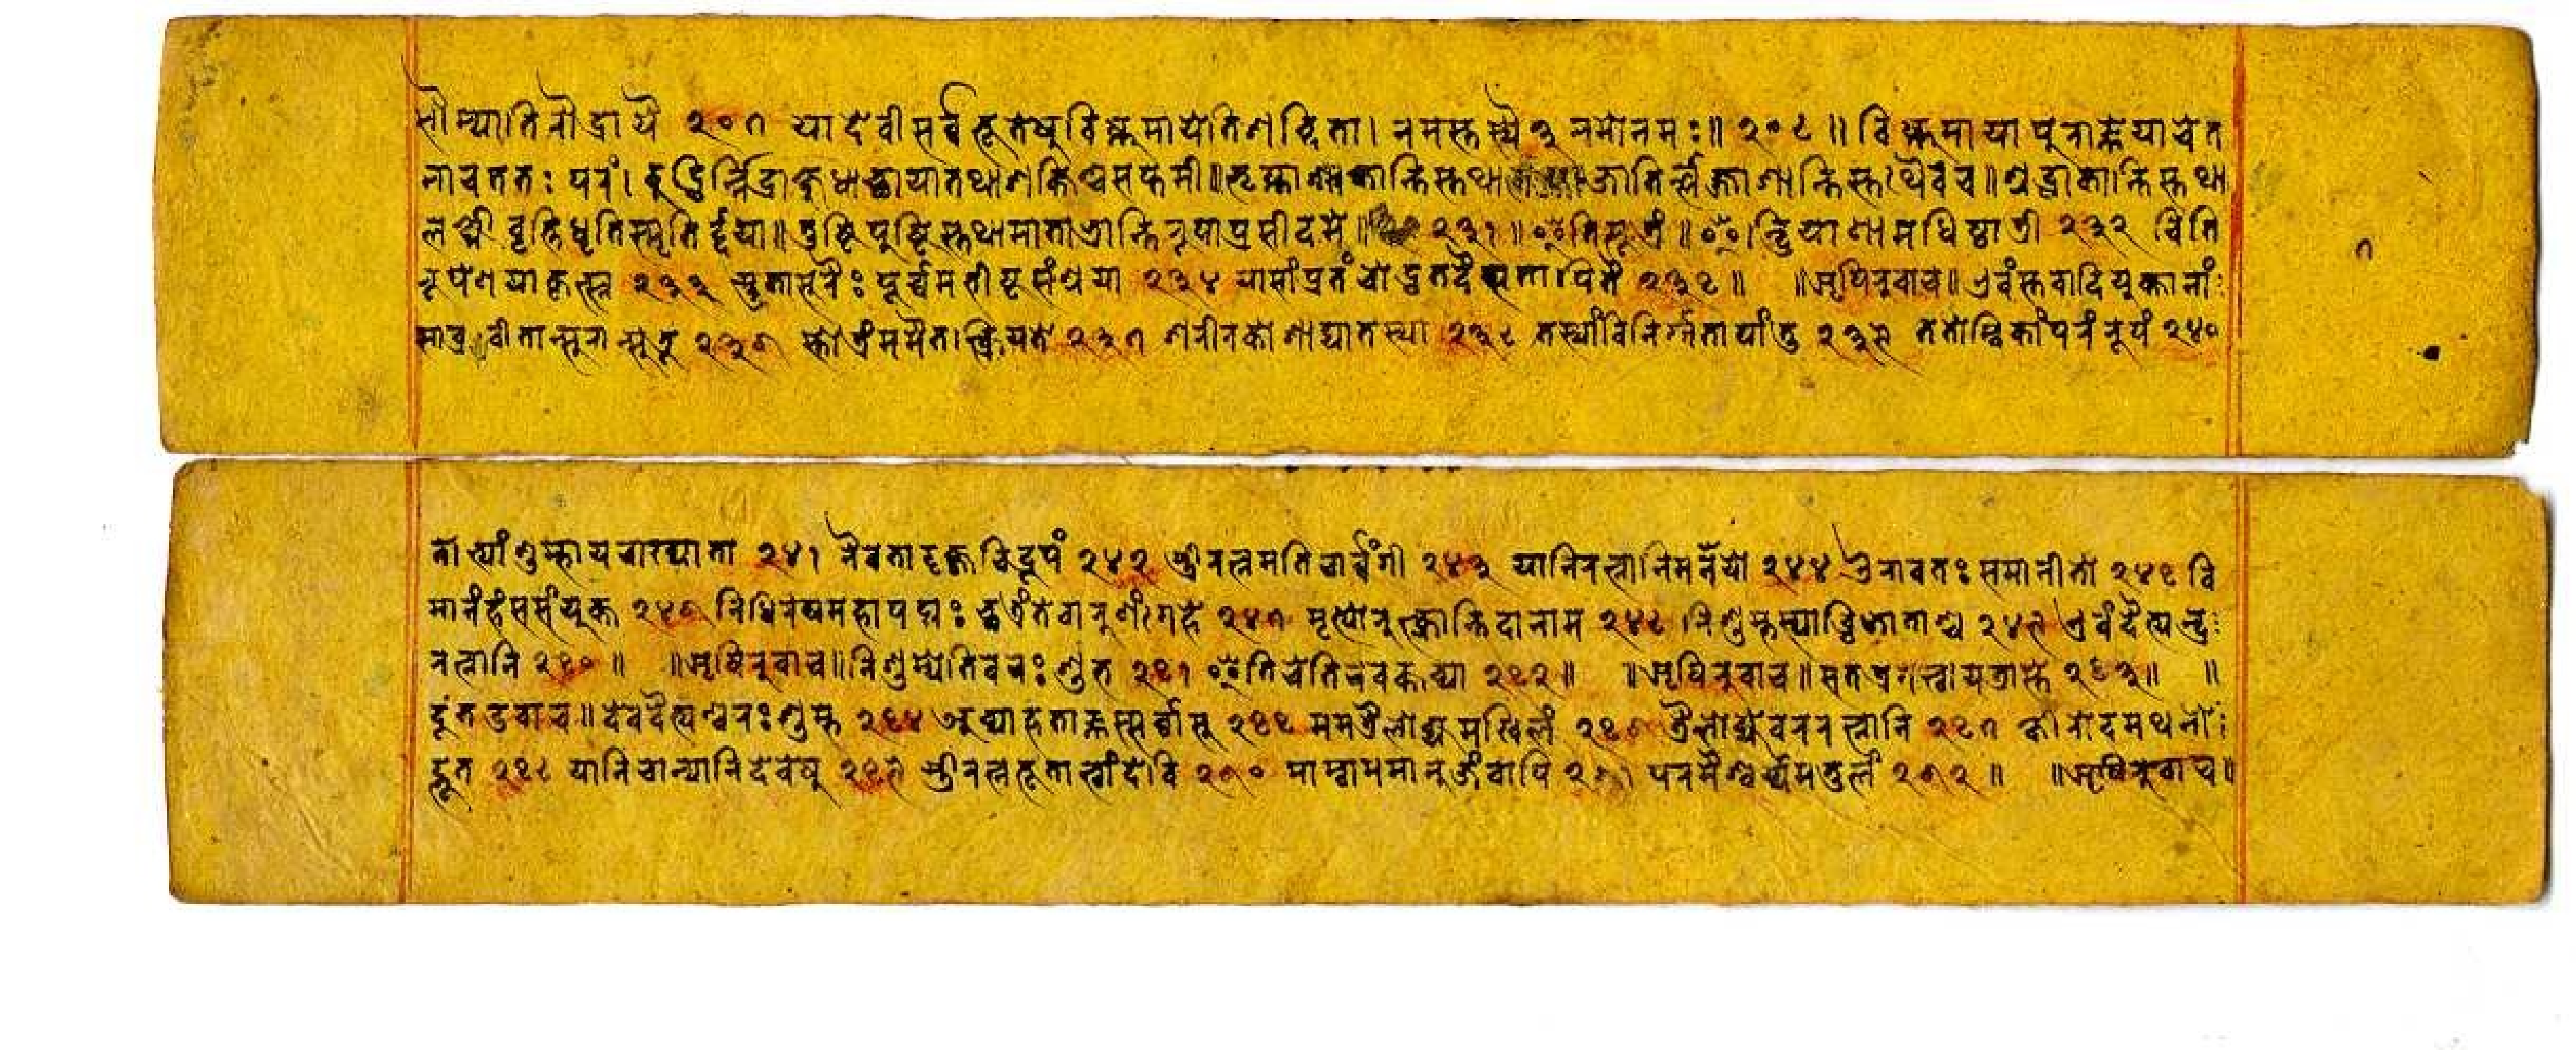 सौम्यातिरौद्रायै २०७ या देवी सर्व्वभूतेषु विष्णुमायेति शब्दिता। नमस्तस्यै ३ नमो नमः॥ २०८॥ विष्णुमाया पुराज्ञेया चेत
नाच ततः परं। बुद्धिर्न्निद्राक्षुधाच्छाया तथा शक्तिश्च सप्तमी॥ तृष्णा क्षान्तिस्तथा जातिर्ल्लज्जा शान्तिस्तथैवच॥ श्रद्धा कान्तिस्तथा
लक्ष्मी वृत्ति धृति स्मृतिर्द्दया॥ तुष्टि पुष्टिस्तथा माता भ्रान्तिरूपा प्रसीद मे॥ २३१॥ इतिसूत्रं॥ इन्द्रियाणामधिष्ठात्री २३२ चिति
रूपेण या कृत्स्न २३३ स्तुतासुरैः पूर्व्वमभीष्टसंश्रया २३४ या सांप्रतं चोद्धतदैत्यतापितै २३५॥ ॥ऋषिरुवाच॥ एवं स्तवादियुक्तानां
साब्रवीतान्सुरान्सुभ्रू २३६ स्तोत्रं ममैतत्क्रियते २३७ शरीरकोशाद्यातस्या २३८ तस्यां विनिर्ग्गतायां तु २३९ ततोम्बिकां परं रूपं २४०
ताभ्यां शुम्भाय चाख्याता २४१ नैवतादृक्क्वचिद्रूपं २४२ स्त्रीरत्नमतिचार्व्वंगी २४३ यानि रत्नानि मनयो २४४ ऐरावतः समानीतो २४५ वि
मानं हंससंयुक्त २४६ निधिरेषमहापद्मः छत्रंते वारुणं गेहे २४७ मृत्योरुत्क्रान्तिदा नाम २४८ निशुम्भस्याब्धिजाताश्च २४९ एवं दैत्यन्द्र
रत्नानि २५०॥ ॥ऋषिरुवाच॥ निशुम्भेति वचः शुंत २५१ इति चेति च वक्तव्या २५२॥ ॥ऋषिरुवाच॥ सतत्रगत्वा यत्रास्ते २५३॥ ॥
दूत उवाच॥ देवदैत्यश्वरः शुम्भ २५४ अव्याहताज्ञस्सर्व्वासु २५५ मम त्रैलोक्यमखिलं २५६ त्रैलोक्ये वररत्नानि २५७ क्षीरोदमथनो
द्भूत २५८ यानि चान्यानि देवेषु २५९ स्त्रीरत्नभूतात्वां देवि २६० माम्वा ममानुजं वापि २६१ परमैश्वर्य्यमतुलं २६२॥ ॥ऋषिरुवाच॥
७